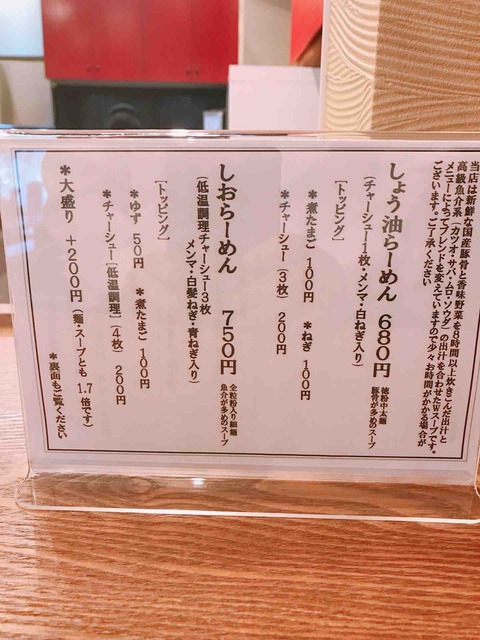 当店は新鮮な国産豚骨と香味野菜を8時間以上炊きこんだ出汁と
高級魚介系(カツオ・サバ・ムロ・ソウダ)の出汁を合わせたWスープです。
メニューによってブレンドを変えていますので少々お時間がかかる場合が
ございます。ご了承ください
しょう油らーめん 680円
徳粉中太麺
豚骨が多めのスープ
(チャーシュー1枚・メンマ・白ねぎ入り)
[トッピング]
*煮たまご 100円 *ねぎ 100円
*チャーシュー(3枚) 200円
しおらーめん 750円
全粒粉入り細麺
魚介が多めのスープ
(低温調理チャーシュー3枚
メンマ・白髪ねぎ・青ねぎ入り)
[トッピング]
*ゆず 50円 *煮たまご 100円
*チャーシュー[低温調理](4枚) 200円
*大盛り +200円(麺・スープとも1.7倍です)
*裏面もご覧ください